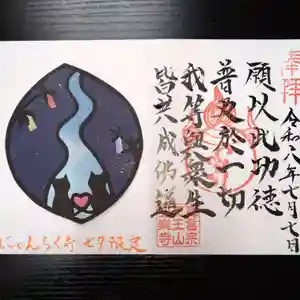 奉拝
令和八年七月七日
願以此功徳
普及於一切
我等與衆生
皆共成佛道
じょんらく寺 七夕限定